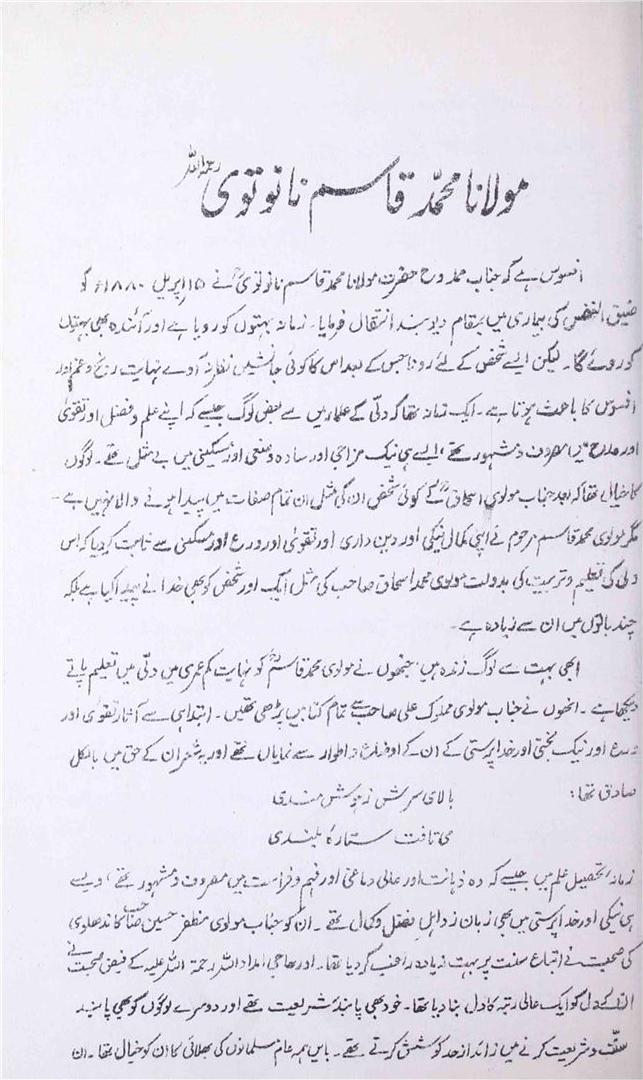 مولانا محمد قاسم نانوتوی رحمہ اللہ
افسوس ہے کہ جناب ممدوح حضرت مولانا محمد قاسم نانوتویؒ نے ۱۵ اپریل ۱۸۸۰ء کو
ضیق النفس کی بیماری میں بمقام دیوبند انتقال فرمایا۔ زمانہ بہتوں کو رویا ہے اور آئندہ بھی بہتوں
کو روئے گا۔ لیکن ایسے شخص کے لئے رونا جس کے بعد اس کا کوئی جانشین نظر نہ آوے نہایت رنج و غم اور
افسوس کا باعث ہوتا ہے۔ ایک زمانہ تھا کہ دلّی کے علماء میں سے بعض لوگ جیسے کہ اپنے علم و فضل اور تقویٰ
اور میں معروف و مشہور تھے، ایسے ہی نیک مزاجی اور سادہ وضعی اور مسکینی میں بے مثل تھے۔ لوگوں
کا خیال تھا کہ بعد جناب مولوی اسحاقؒ کے کوئی شخص ان کی مثل ان تمام صفات میں پیدا ہونے والا نہیں ہے۔
مگر مولوی محمد قاسم مرحوم نے اپنی کمال نیکی اور دین داری اور تقویٰ اور ورع اور مسکینی سے ثابت کر دیا کہ اس
دلی کی تعلیم و تربیت کی بدولت مولوی محمد اسحاق صاحب کی مثل ایک اور شخص کو بھی خدا نے پیدا کیا ہے بلکہ
چند باتوں میں ان سے زیادہ ہے۔
ابھی بہت سے لوگ زندہ ہیں جنھوں نے مولوی محمد قاسمؒ کو نہایت کم عمری میں دلّی میں تعلیم پاتے
دیکھا ہے۔ انھوں نے جناب مولوی مملوک علی صاحب سے تمام کتابیں پڑھی تھیں۔ ابتدا ہی سے آثار تقویٰ اور
ورع اور نیک بختی اور خدا پرستی کے ان کے اوضاع و اطوار سے نمایاں تھے اور یہ شعر ان کے حق میں بالکل
صادق تھا:
بالای سرش ز ہوش مندی
می تافت ستارہ بلندی
زمانہ تحصیل علم میں جیسے کہ وہ ذہانت اور عالی دماغی اور فہم و فراست میں معروف و مشہور تھے، ویسے
ہی نیکی اور خدا پرستی میں بھی زبان زد اہل فضل و کمال تھے۔ ان کو جناب مولوی مظفر حسین صاحب کاندھلوی
کی صحبت نے اتباع سنت پر بہت زیادہ راغب کر دیا تھا۔ اور حاجی امداد اللہ رحمۃ اللہ علیہ کے فیض صحبت نے
ان کے دل کو ایک عالی رتبہ کا دل بنا دیا تھا۔ خود بھی پابند شریعت تھے اور دوسرے لوگوں کو بھی پابند
سنّت و شریعت کرنے میں زائد از حد کوشش کرتے تھے۔ بایں ہمہ عام مسلمانوں کی بھلائی کا ان کو خیال تھا۔ ان